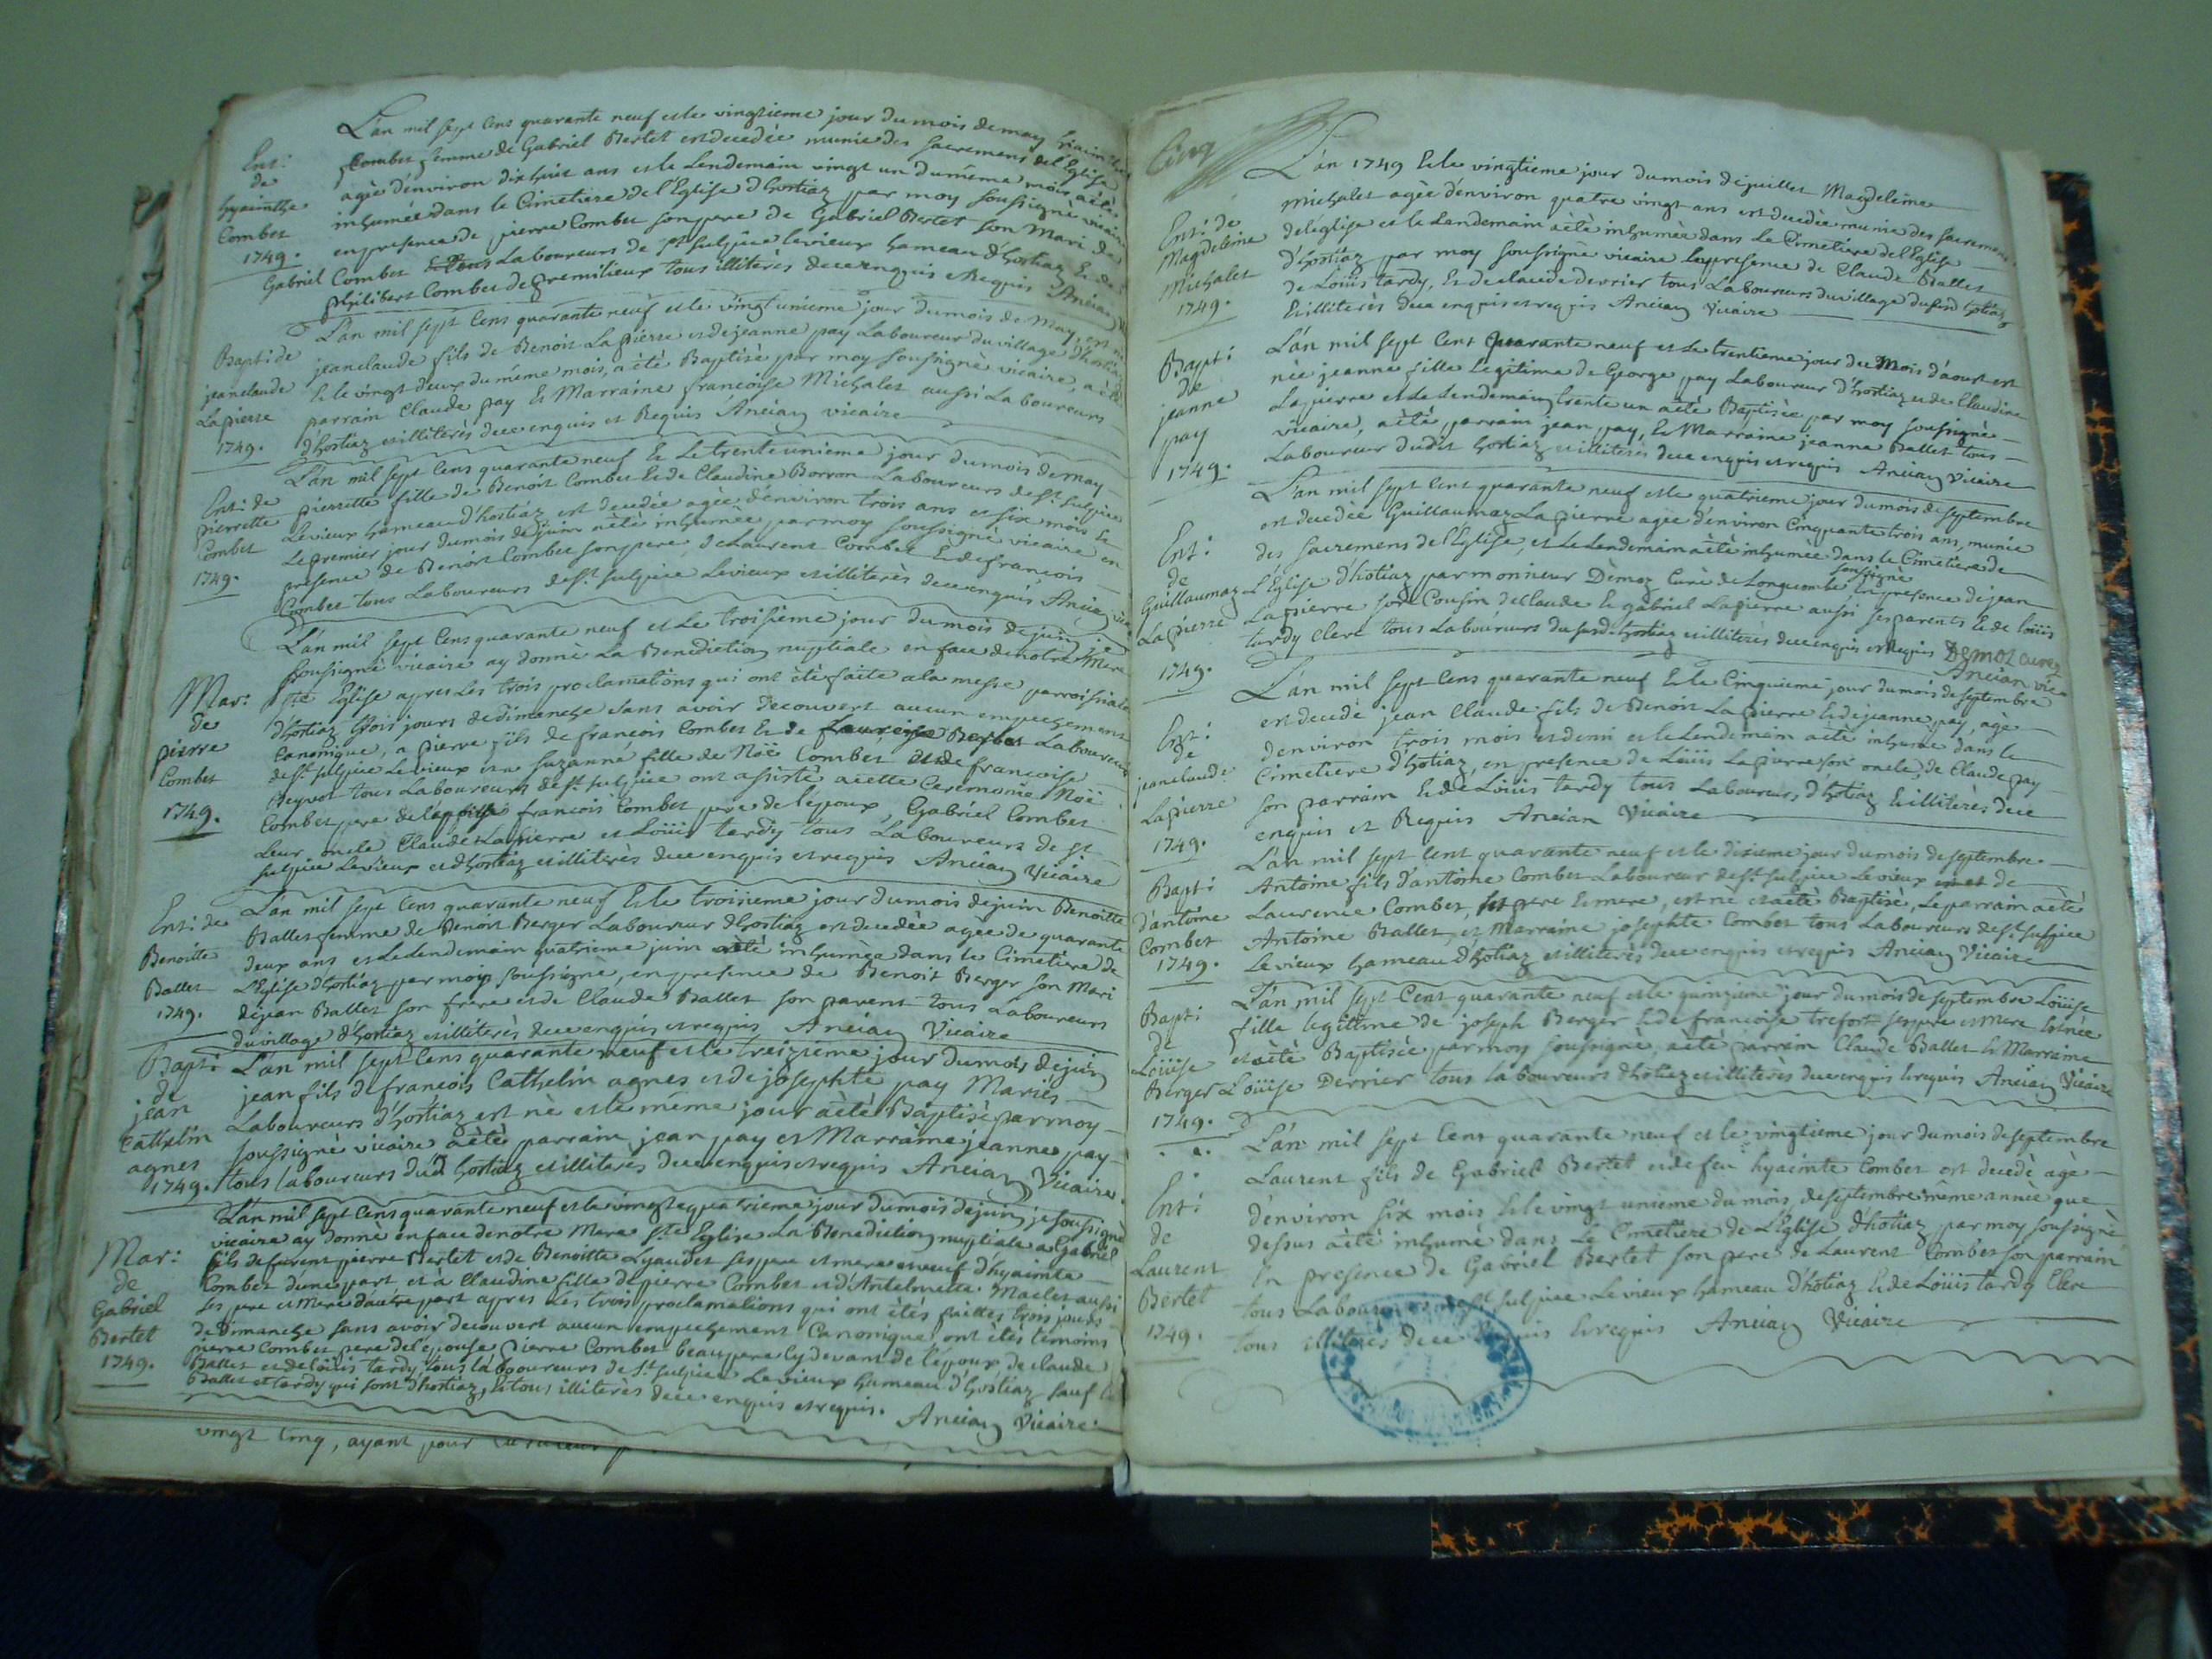 L'an mil sept cens quarante neuf et le vingtieme jour du mois de may
Combet femme de Gabriel Bertet est decedée munie des sacremens de l'Eglise
agée d'environ dix huit ans et le Lendemain vingt un du même mois a été
inhumée dans le Cimetiere de l'Eglise d'hostiaz par moy soussigné vicaire
en presence de pierre Combet son pere de Gabriel Bertet son Mari de
Gabriel Combet Laboureurs de st sulpice levieux hameau d'hostiaz Et de
philibert Combet de premilieux tous illiterés de ce enquis et Requis Ancian
Ent: de hyacinthe Combet 1749.
L'an mil sept cens quarante neuf et le vingt unieme jour du mois de May est né
jean claude fils de Benoit Lapierre et de jeanne pay Laboureur du village d'hostiaz
Et le vingt deux du même mois, a été Baptisé par moy soussigné vicaire, a été
parrain Claude pay Et Marraine francoise Michalet aussi Laboureurs
d'hostiaz et illiterés de ce enquis et Requis Ancian vicaire
Bapt: de jean claude Lapierre 1749.
L'an mil sept cens quarante neuf Et Le trente unieme jour du mois de may
pierrette fille de Benoit Combet Et de Claudine Borron Laboureurs de st sulpice
Levieux hameau d'hostiaz est decedée agée d'environ trois ans et six mois Et
Le premier jour du mois de juin a été inhumée par moy soussigné vicaire en
presence de Benoit Combet son pere, de Laurent Combet Et de francois
Combet tous Laboureurs de st sulpice Levieux et illiterés de ce enquis, Ancian
Ent: de pierrette Combet 1749.
L'an mil sept cens quarante neuf et Le troisieme jour du mois de juin je
soussigné vicaire ay donné La Benediction nuptiale en face de notre Mere
ste Eglise apres Les trois proclamations qui ont été faite a la messe parroissiale
d'hostiaz trois jours de dimanche sans avoir decouvert aucun empechement
Canonique, a pierre fils de francois Combet Et de Laboureurs
de st sulpice Levieux et a Suzanne fille de Noë Combet et de francoise
Peyvot tous Laboureurs de st sulpice ont assisté a cette Ceremonie Noë
Combet pere de l'epouse francois Combet pere de l'époux, Gabriel Combet
Leur oncle Claude Lapierre et Loüis tardy tous Laboureurs de st
sulpice Levieux et d'hostiaz et illiterés de ce enquis et requis Ancian Vicaire
Mar: de pierre Combet 1749.
L'an mil sept cens quarante neuf Et le troisieme jour du mois de juin Benoitte
Ballet femme de Benoit Berger Laboureur d'hostiaz est decedée agée de quarante
deux ans et Le Lendemain quatrieme juin a été inhumée dans le Cimetiere de
L'Eglise d'hostiaz par moy soussigné, en presence de Benoit Berger son Mari
de jean Ballet son frere et de Claude Ballet son parent tous Laboureurs
du village d'hostiaz et illiterés de ce enquis et requis Ancian Vicaire
Ent: de Benoitte Ballet 1749.
L'an mil sept cens quarante neuf et le treizieme jour du mois de juin
jean fils de francois Cathelin agnes et de josephte pay Mariés
Laboureurs d'hostiaz est né et le même jour a été Baptisé par moy
soussigné vicaire a été parrain jean pay et Marraine jeanne pay
tous laboureurs dud hostiaz et illiterés de ce enquis et requis Ancian Vicaire.
Bapt: de jean Cathelin agnes 1749.
L'an mil sept cens quarante neuf et le vingt quatrieme jour du mois de juin je soussigné
vicaire ay donné en face de notre Mere ste Eglise La Benediction nuptiale a Gabriel
fils de furent pierre Bertet et de Benoitte Lyaudet ses pere et mere et veuf d'hyainte
Combet d'une part et a Claudine fille de pierre Combet et d'Antelmette Maclet aussi
ses pere et Mere d'autre part apres Les trois proclamations qui ont étés faittes trois jours
de dimanche sans avoir decouvert aucun empechement Canonique ont étés témoins
pierre Combet pere de l'epouse pierre Combet beaupere cy devant de l'époux de claude
Ballet et de Loüis tardy tous laboureurs de st sulpice Levieux hameau d'hostiaz sauf
Ballet et tardy qui sont d'hostiaz, Et tous illiterés de ce enquis et requis. Ancian Vicaire
Mar: de Gabriel Bertet 1749.
vingt cinq, ayant pour
Cinq
L'an 1749 Et le vingtieme jour du mois de juillet Magdeleine
Michalet agée d'environ quatre vingt ans est decedée munie des sacremens
de l'église et le Landemain a été inhumée dans Le Cimetiere de l'Eglise
d'hostiaz par moy soussigné vicaire En presence de Claude Ballet
de Loüis tardy, Et de claude derrier tous Laboureurs du village dusd hotiaz
Et illiterés de ce enquis et requis Ancian Vicaire
Ent: de Magdeleine Michalet 1749.
L'an mil sept cent quarante neuf et Le trentieme jour du Mois d'aoust est
née jeanne fille Legitime de George pay Laboureur d'hostiaz et de Claudine
Lapierre et Le Lendemain trente un a été Baptisée par moy soussigné
vicaire, a été parrain jean pay, Et Marraine jeanne Ballet tous
Laboureur dudit hostiaz et illiterés de ce enquis et requis Ancian Vicaire
Bapt: de jeanne pay 1749.
L'an mil sept cent quarante neuf et le quatrieme jour du mois de septembre
est decedée Guillaumaz Lapierre agée d'environ Cinquante trois ans, munie
des sacremens de l'Eglise, et Le Lendemain a été inhumée dans le Cimetiere de
L'Eglise d'hotiaz par monsieur Démoz Curé de Longecombe soussigné En presence de jean
Lapierre son Cousin de Claude Et gabriel Lapierre aussi ses parents Et de loüis
tardy clerc tous Laboureurs du susd hostiaz et illiterés de ce enquis et Requis Demoz curé
Ancian vic.
Ent: de Guillaumaz Lapierre 1749.
L'an mil sept cens quarante neuf Et le Cinquieme jour du mois de septembre
est decedé jean Claude fils de Benoit Lapierre Et de jeanne pay, agé
d'environ trois mois et demi et le Lendemain a été inhumé dans le
Cimetiere d'hotiaz, en presence de Loüis Lapierre son oncle, de Claude pay
son parrain Et de Loüis tardy tous Laboureurs d'hotiaz Et illiterés de ce
enquis et Requis Ancian Vicaire
Ent: de jean claude Lapierre 1749.
L'an mil sept cent quarante neuf et le dixieme jour du mois de septembre
Antoine fils d'antoine Combet Laboureur de st sulpice Levieux et de
Laurence Combet, pere Et mere, est né et a été Baptisé, Le parrain a été
Antoine Ballet, et Marraine josephte Combet tous Laboureurs de st sulpice
Levieux hameau d'hotiaz et illiterés de ce enquis et requis Ancian Vicaire
Bapt: d'antoine Combet 1749.
L'an mil sept Cent quarante neuf et le quinzieme jour du mois de septembre Loüise
fille legitime de joseph Berger Et de francoise trefort ses pere et mere Est née
et a été Baptisée par moy soussigné, a été parrain Claude Ballet Et Marraine
Loüise Derrier tous laboureurs d'hotiaz et illiterés de ce enquis Et requis Ancian Vicaire
Bapt: de Loüise Berger 1749.
L'an mil sept cent quarante neuf et le vingtieme jour du mois de septembre
Laurent fils de Gabriel Bertet et de feu hyacinte Combet est decedé agé
d'environ six mois Et le vingt unieme du mois de septembre même année que
dessus a été inhumé dans Le Cimetiere de L'Eglise d'hotiaz par moy soussigné
En presence de Gabriel Bertet son pere de Laurent Combet son parrain
tous Laboureurs de st sulpice Levieux hameau d'hotiaz Et de Loüis tardy Clerc
tous illiterés de ce enquis Et requis Ancian Vicaire
Ent: de Laurent Bertet 1749.